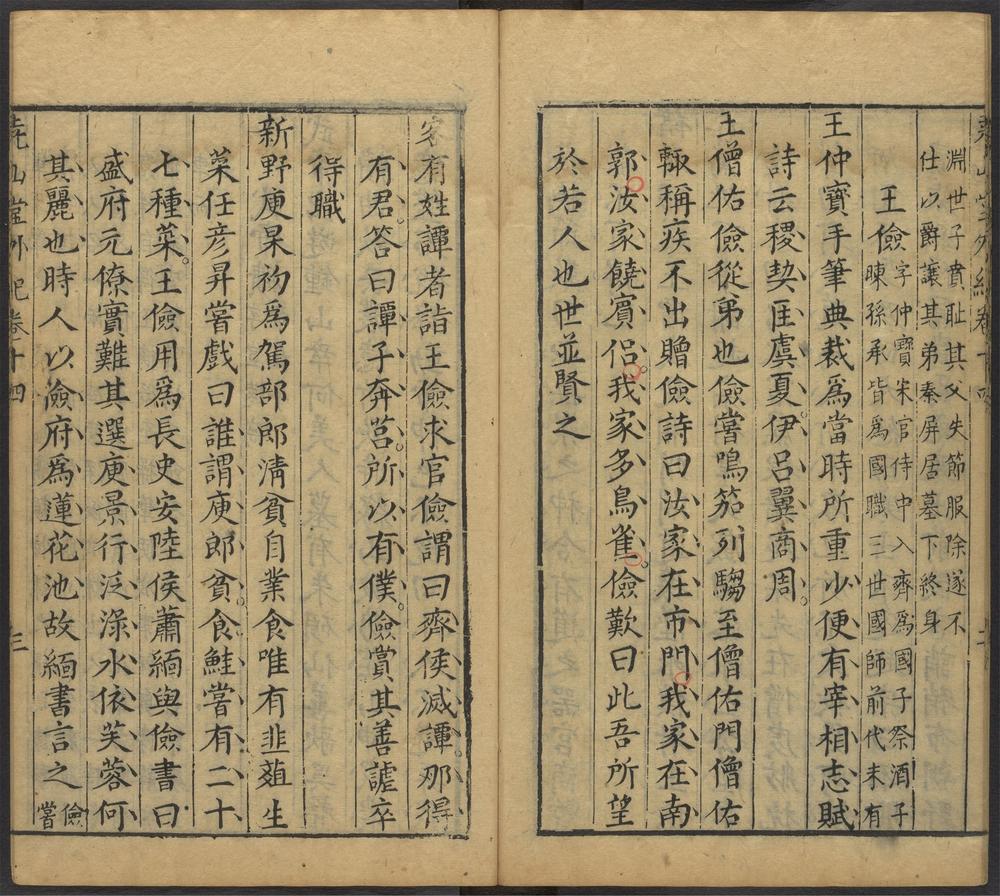 堯山堂外紀卷十四
淵世子賁耻其父失節服除遂不
仕以爵讓其弟秦屏居墓下終身
王儉字仲寶宋官侍中入齊爲國子祭酒子
暕孫承皆爲國職三世國師前代未有
王仲寶手筆典裁爲當時所重少便有宰相志賦
詩云稷契匡虞夏伊呂翼商周
王僧佑儉從弟也儉嘗鳴笳列騶至僧佑門僧佑
輙稱疾不出贈儉詩曰汝家在市門我家在南
郭汝家饒賓侶我家多鳥雀儉歎曰此吾所望
於若人也世並賢之
客有姓譚者詣王儉求官儉謂曰齊侯滅譚那得
有君答曰譚子奔莒所以有僕儉賞其善謔卒
得職
新野庾杲初爲駕部郎清貧自業食唯有韭葅生
菜任彦昇嘗戲曰誰謂庾郎貧食鮭嘗有二十
七種菜王儉用爲長史安陸侯蕭緬與儉書曰
盛府元僚實難其選庾景行泛渌水依芙蓉何
其麗也時人以儉府爲蓮花池故緬書言之儉
嘗
堯山堂外紀卷十四 三